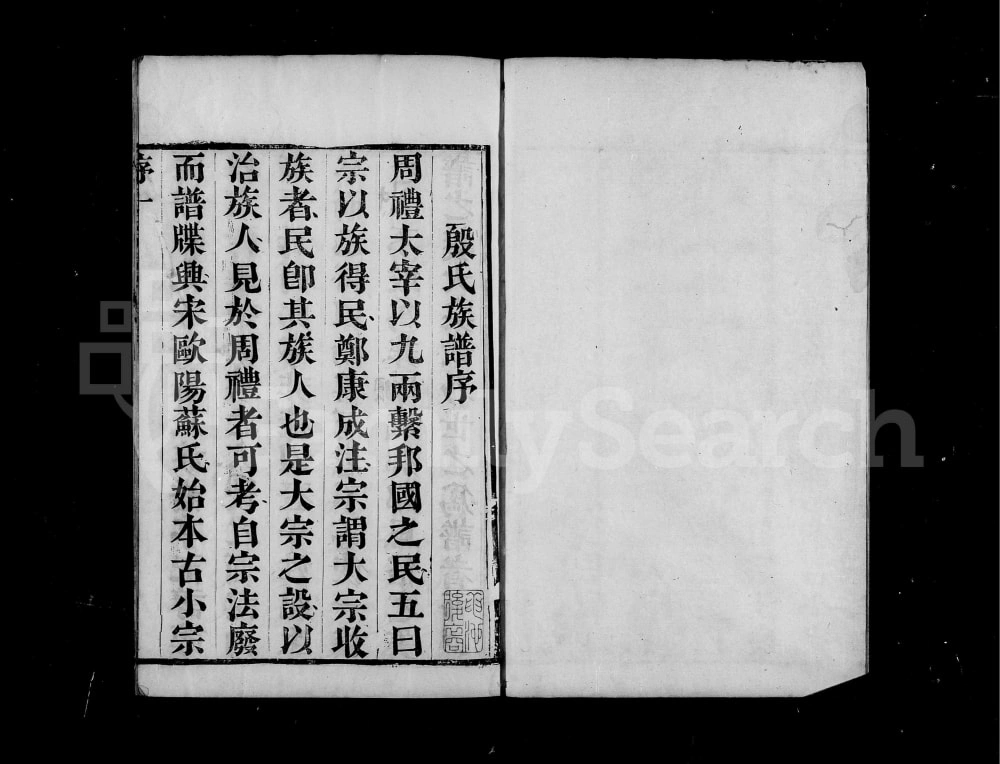 殷氏族譜序
周禮太宰以九兩繫邦國之民五曰
宗以族得民鄭康成注宗謂大宗收
族者民卽其族人也是大宗之設以
治族人見於周禮者可考自宗法廢
而譜牒興宋歐陽蘇氏始本古小宗
序 一